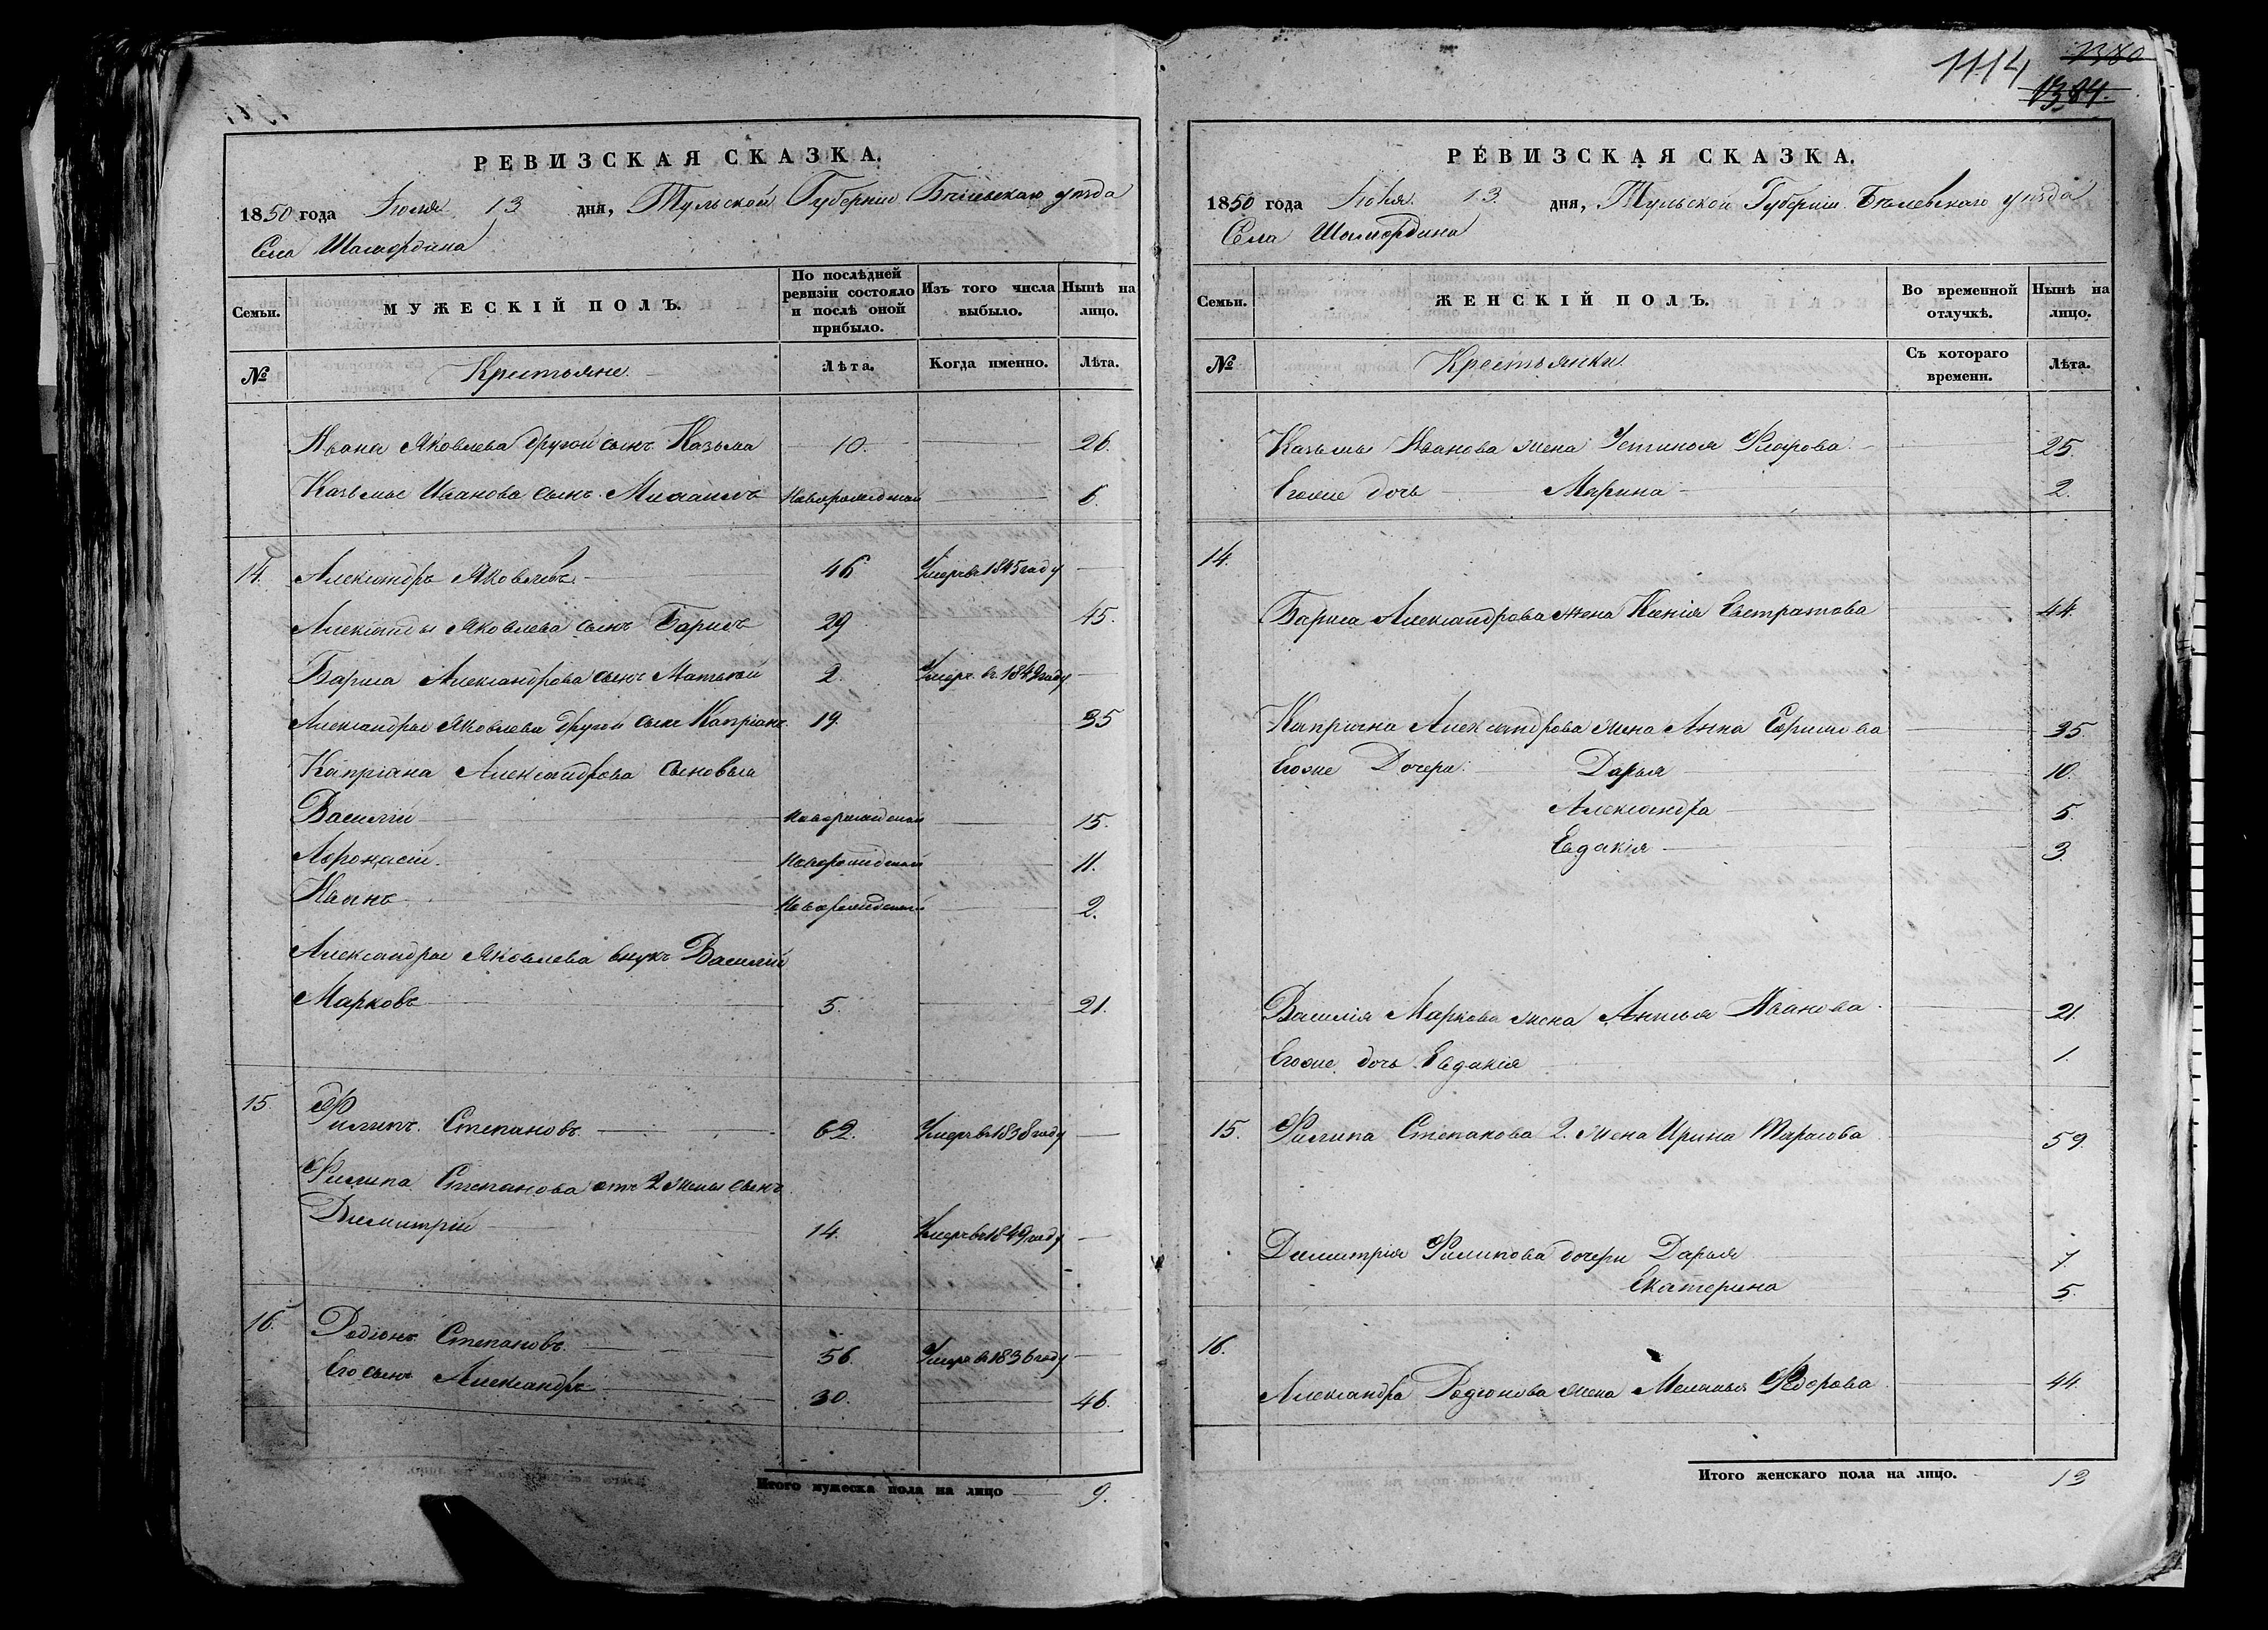 1114
1380
1384.
РЕВИЗСКАЯ СКАЗКА.
1850 года Іюля 13 дня, Тульской Губерніи Бѣлевскаго уѣзда
Села Шамордина
Семьи. МУЖЕСКІЙ ПОЛЪ. По послѣдней ревизіи состояло и послѣ оной прибыло. Изъ того числа выбыло. Нынѣ на лицо.
№ Крестьяне. Лѣта. Когда именно. Лѣта.
Ивана Яковлева другой сынъ Казьма 10. 26.
Казьмы Иванова сынъ Михаилъ Новорожденный 6.
14. Александръ Яковлевъ 46 Умеръ въ 1845 году
Александры Яковлева сынъ Барисъ 29 45.
Бариса Александрова сынъ Матвѣй 2. Умеръ въ 1849 году
Александры Яковлева другой сынъ Капріянъ 19. 35
Капріана Александрова сыновья
Василій Новорожденный 15.
Афонасій. Новорожденный 11.
Новорожденный 2.
Александры Яковлева внукъ Василій
Марковъ 5. 21.
15. Филипъ Степановъ 62. Умеръ въ 1838 году
Филипа Степанова отъ 2 жены сынъ
Димитрій 14. Умеръ въ 1849 году
16. Родіонъ Степановъ 56. Умеръ въ 1836 году
Его сынъ Александръ 30. 46.
Итого мужеска пола на лицо 9.
РЕВИЗСКАЯ СКАЗКА.
1850 года Іюля 13 дня, Тульской Губерніи Бѣлевскаго уѣзда
Села Шамордина
Семьи. ЖЕНСКІЙ ПОЛЪ. Во временной отлучкѣ. Нынѣ на лицо.
№ Крестьянки. Съ котораго времени. Лѣта.
Казьмы Иванова жена Устинья 25.
Егоже дочь Марина 2.
14.
Бариса Александрова жена Ксенія Евстратова 44.
Капріана Александрова жена Анна 35.
Егоже Дочери: Дарья 10.
Александра 5.
Евдакія 3.
Василія Маркова жена Иванова 21.
Егоже дочь Евдакія 1.
15. Филипа Степанова 2. жена Ирина Тарасова 59.
Димитрія Филипова дочери Дарья 7
Екатерина 5.
16.
Александра Родіонова жена Меланья Федорова 44.
Итого женскаго пола на лицо. 13